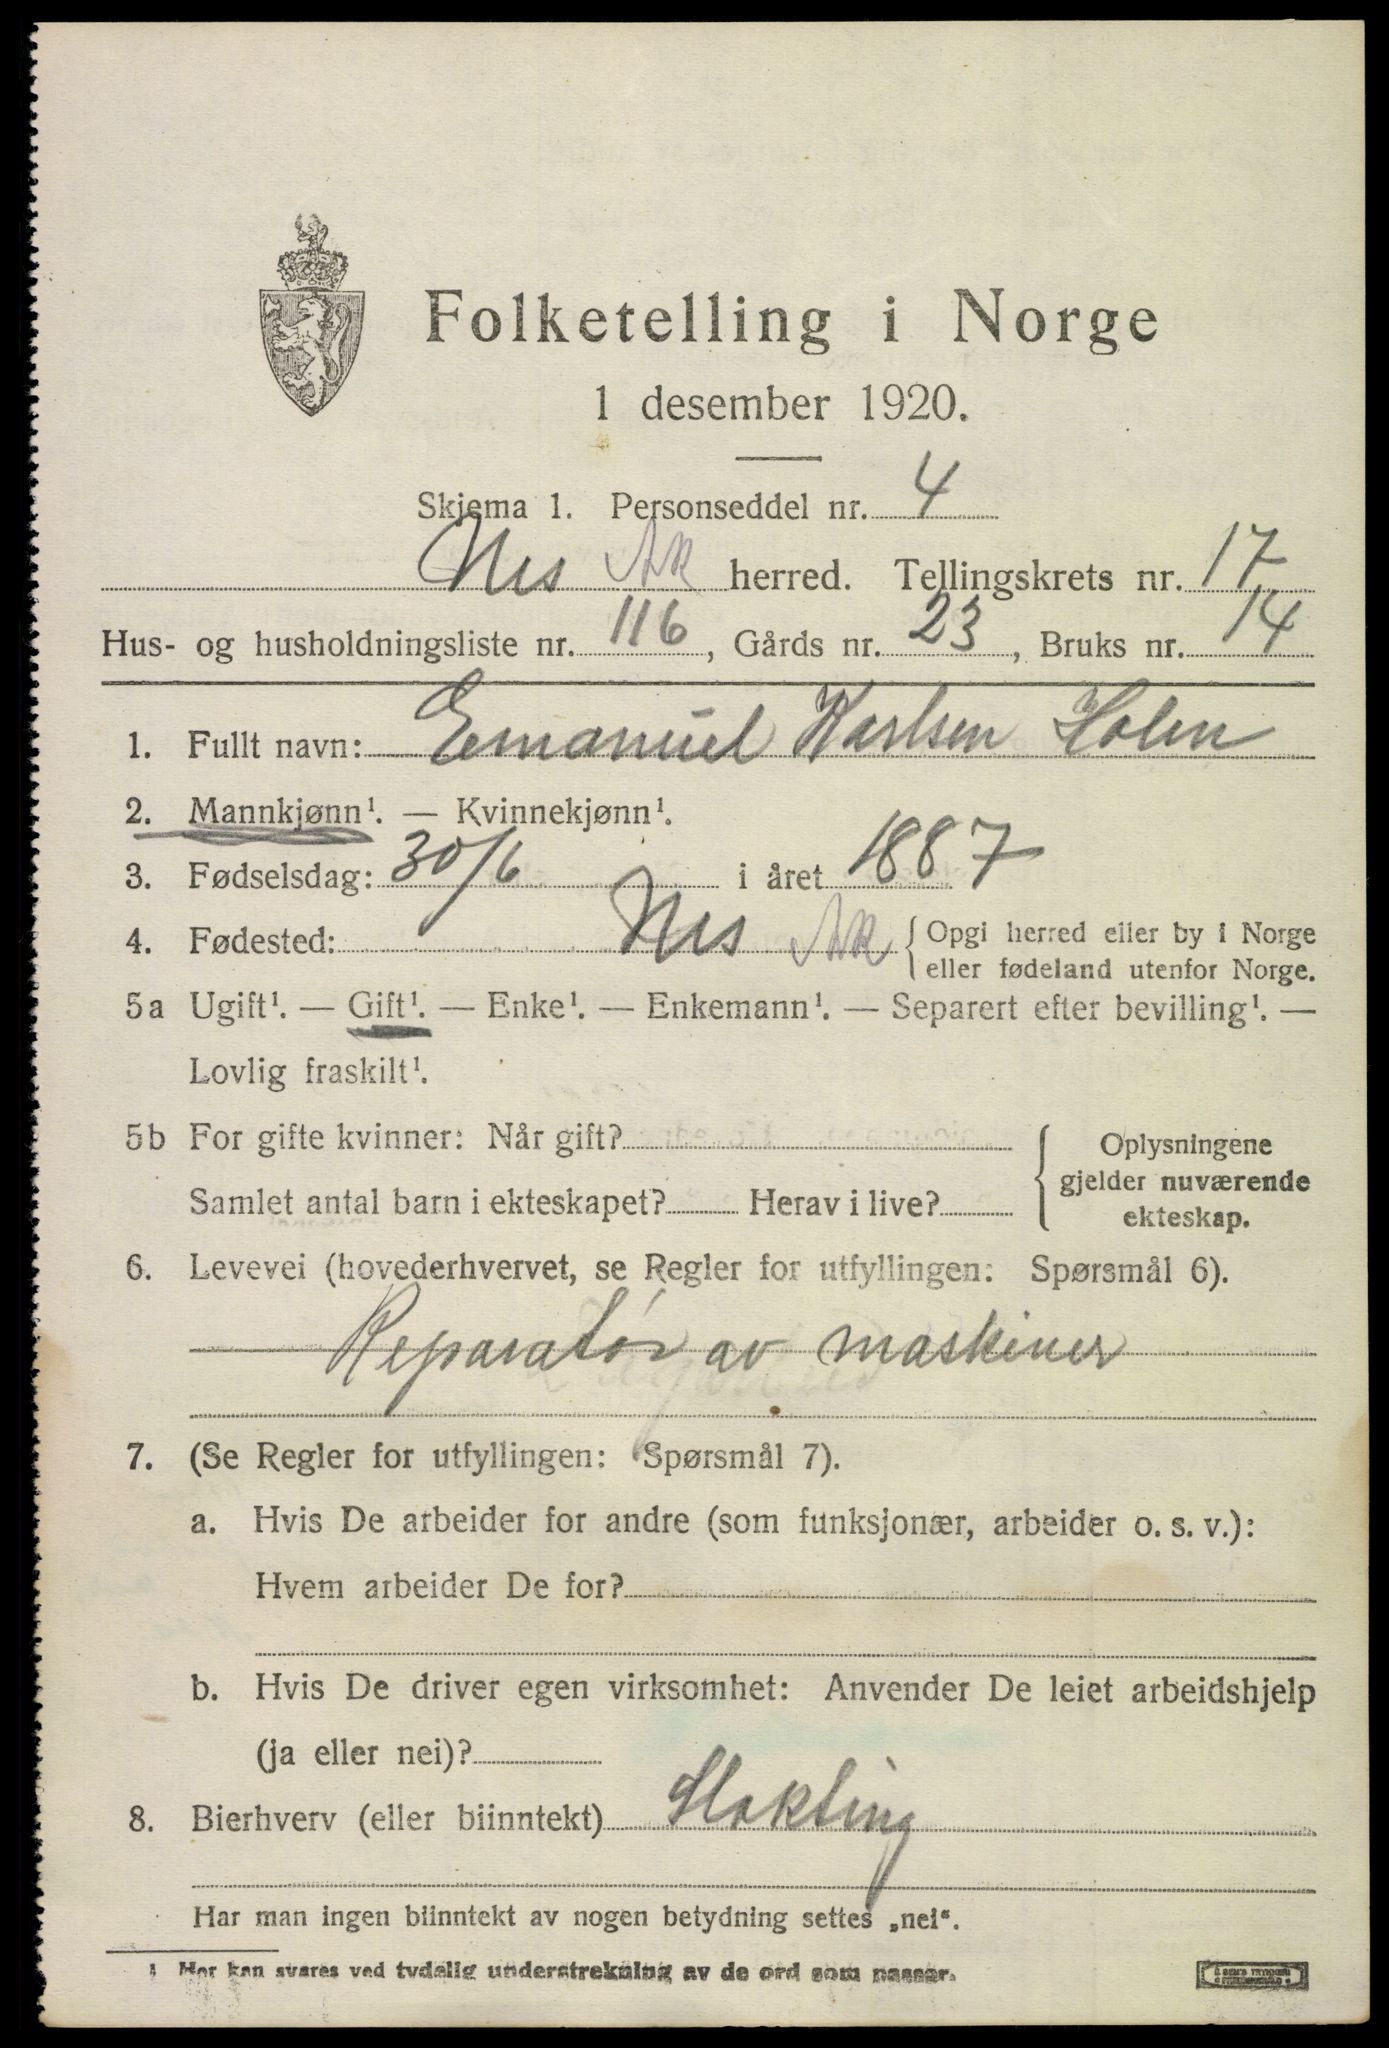 Folketelling i Norge
1 desember 1920.
Skjema 1. Personseddel nr. 4
Nes AK herred. Tellingskrets nr. 17
Hus- og husholdningsliste nr. 116, Gårds nr. 23, Bruks nr. 14
1. Fullt navn: Emanuel Karlsen Holen
2. Mannkjønn¹. — Kvinnekjønn¹.
3. Fødselsdag: 30/6 i året 1887
4. Fødested: Nes AK { Opgi herred eller by i Norge
eller fødeland utenfor Norge.
5a Ugift¹. — Gift¹. — Enke¹. — Enkemann¹. — Separert efter bevilling¹. —
Lovlig fraskilt¹.
5b For gifte kvinner: Når gift?
Samlet antal barn i ekteskapet? Herav i live?
Oplysningene
gjelder nuværende
ekteskap.
6. Levevei (hovederhvervet, se Regler for utfyllingen: Spørsmål 6).
Reparatør av maskiner
7. (Se Regler for utfyllingen: Spørsmål 7).
a. Hvis De arbeider for andre (som funksjonær, arbeider o. s. v.):
Hvem arbeider De for?
b. Hvis De driver egen virksomhet: Anvender De leiet arbeidshjelp
(ja eller nei)?
8. Bierhverv (eller biinntekt) Slakting
Har man ingen biinntekt av nogen betydning settes „nei“.
¹ Her kan svares ved tydelig understrekning av de ord som passer.